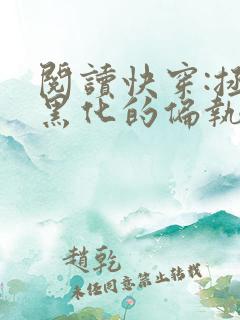 閱讀快穿:拯
黑化的偏執
趙乾
未經同意禁止轉載